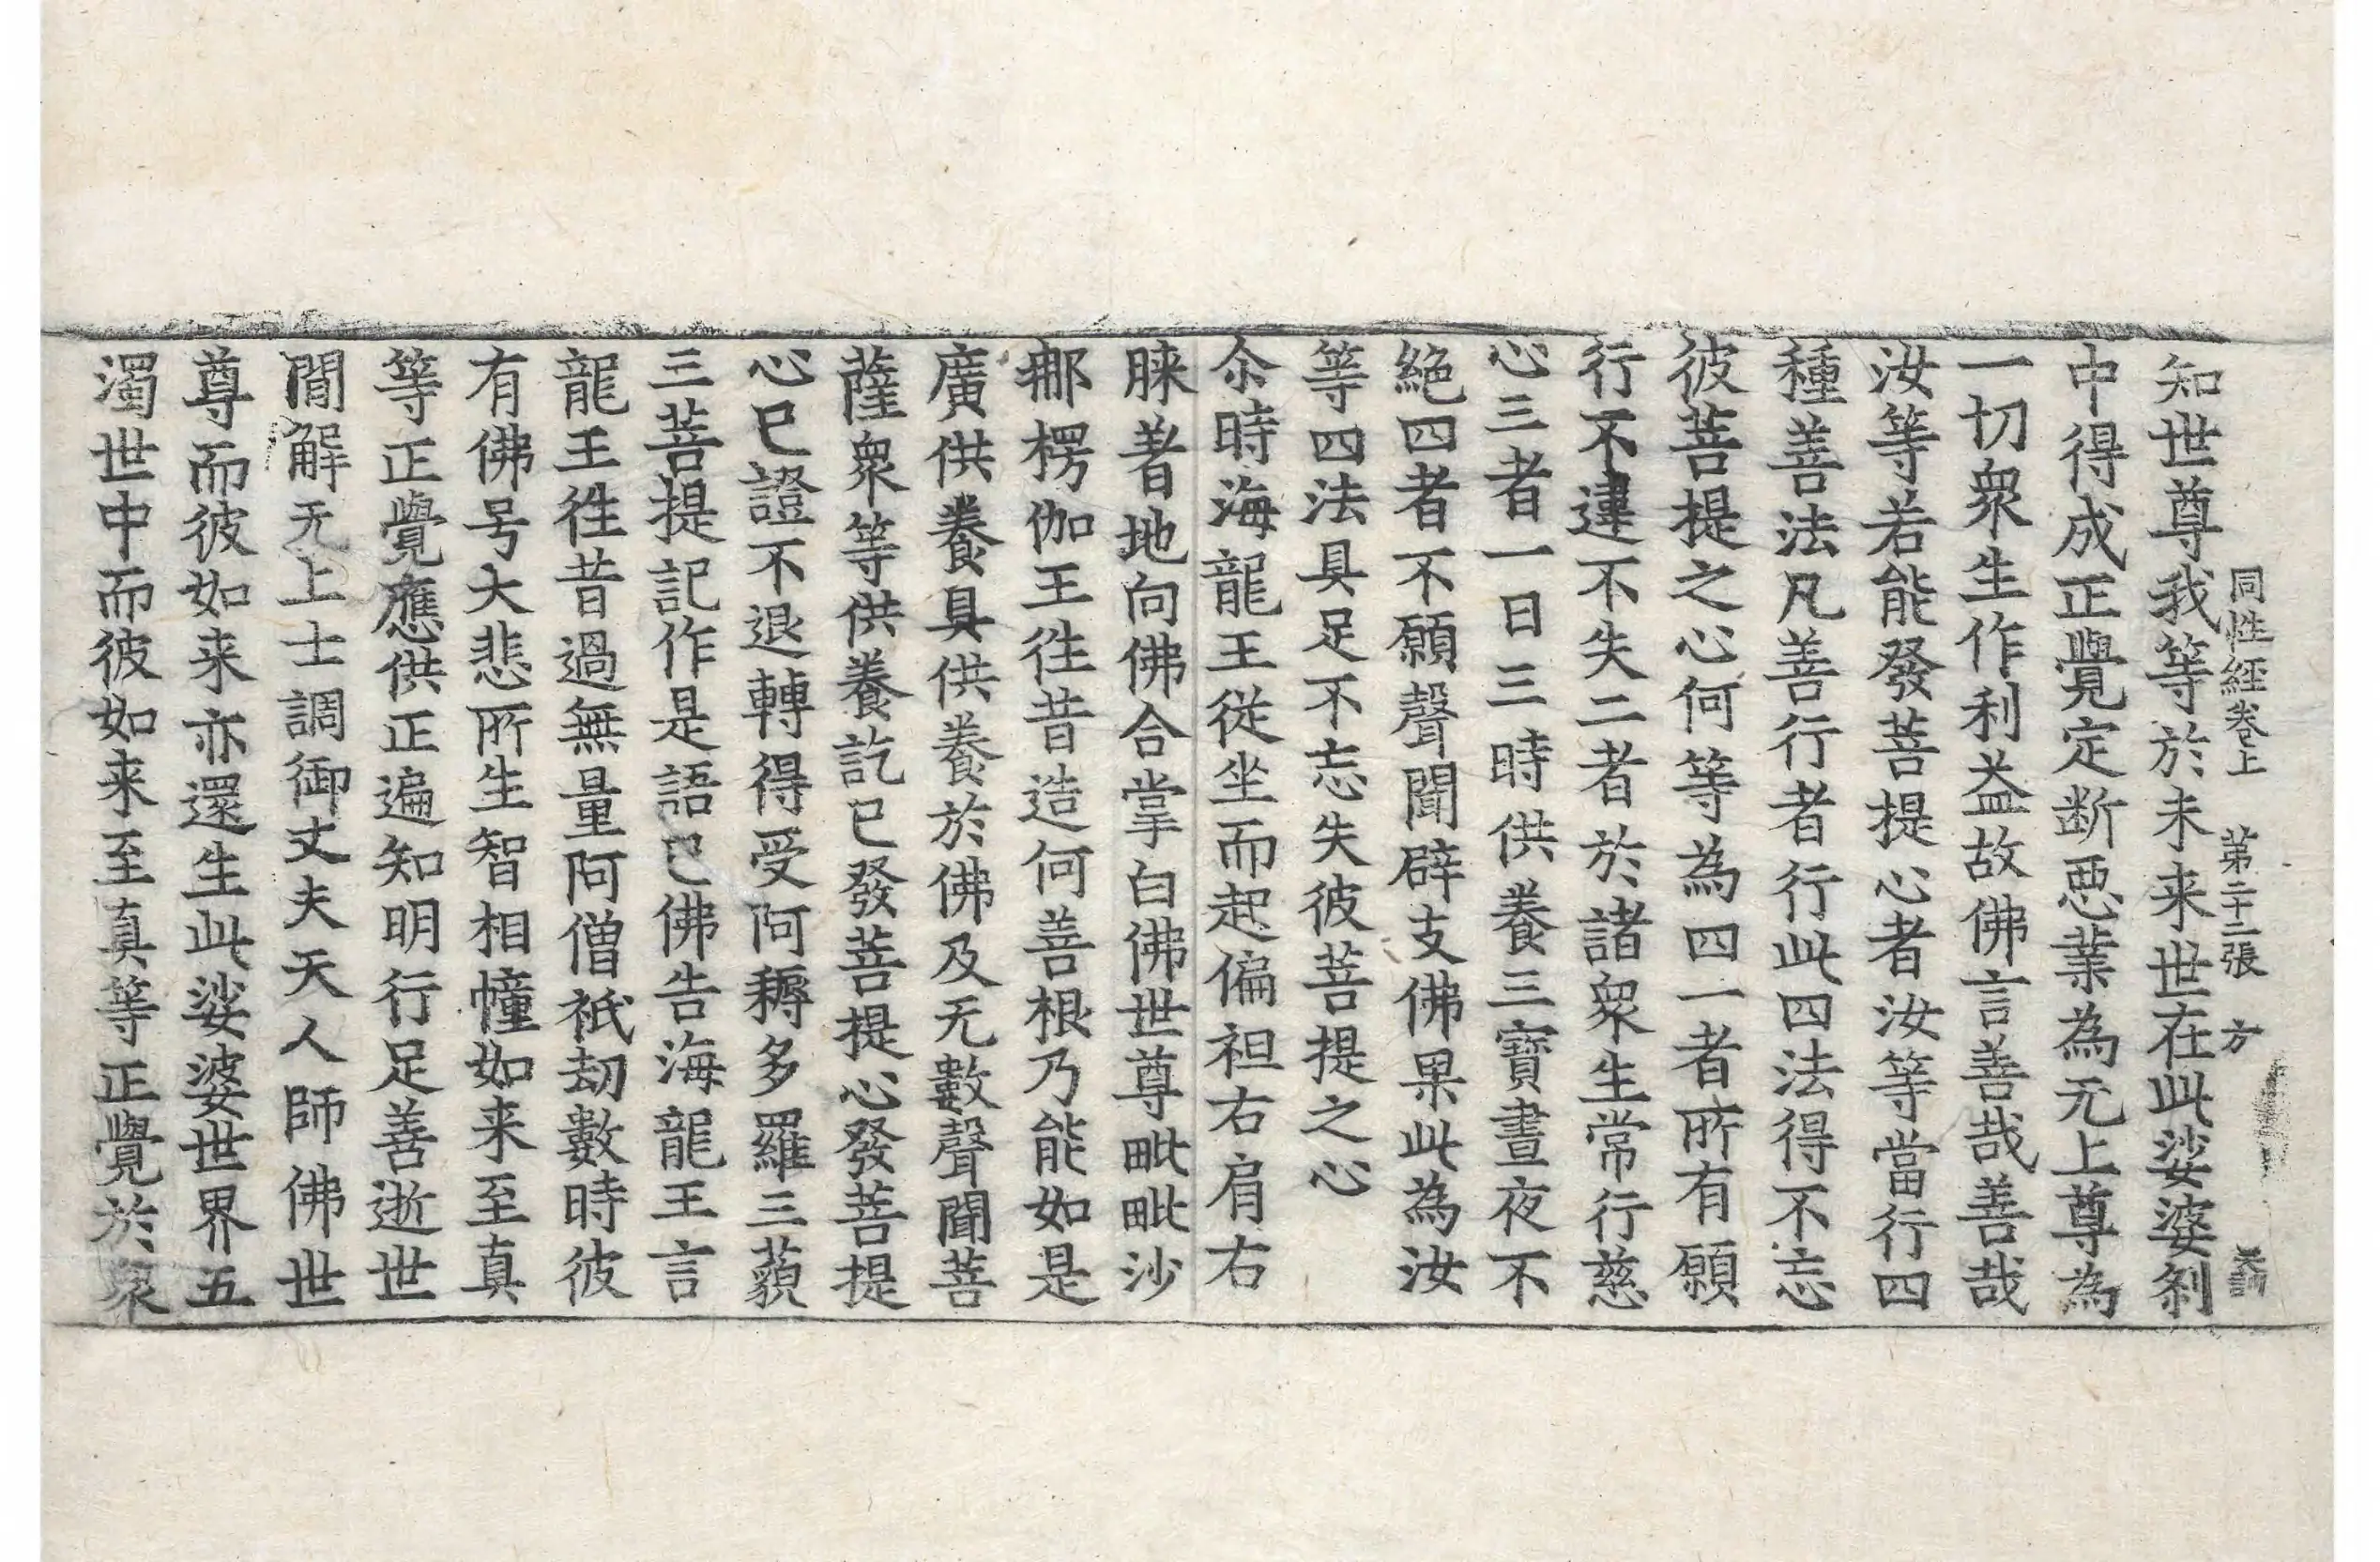 同性經卷上 第二十二張 方
知世尊我等於未来世在此娑婆刹
中得成正覺定断惡業為无上尊為
一切衆生作利益故佛言善哉善哉
汝等若能發菩提心者汝等當行四
種善法凡善行者行此四法得不忘
彼菩提之心何等為四一者所有願
行不違不失二者於諸衆生常行慈
心三者一日三時供養三寶晝夜不
絶四者不願聲聞辟支佛果此為汝
等四法具足不忘失彼菩提之心
尒時海龍王從坐而起偏袒右肩右
膝著地向佛合掌白佛世尊毗毗沙
那楞伽王往昔造何善根乃能如是
廣供養具供養於佛及无數聲聞菩
薩衆等供養訖已發菩提心發菩提
心已證不退轉得受阿耨多羅三藐
三菩提記作是語已佛告海龍王言
龍王徃昔過無量阿僧祇劫數時彼
有佛号大悲所生智相幢如来至真
等正覺應供正遍知明行足善逝世
間解无上士調御丈夫天人師佛世
尊而彼如来亦還生此娑婆世界五
濁世中而彼如来至真等正覺於衆